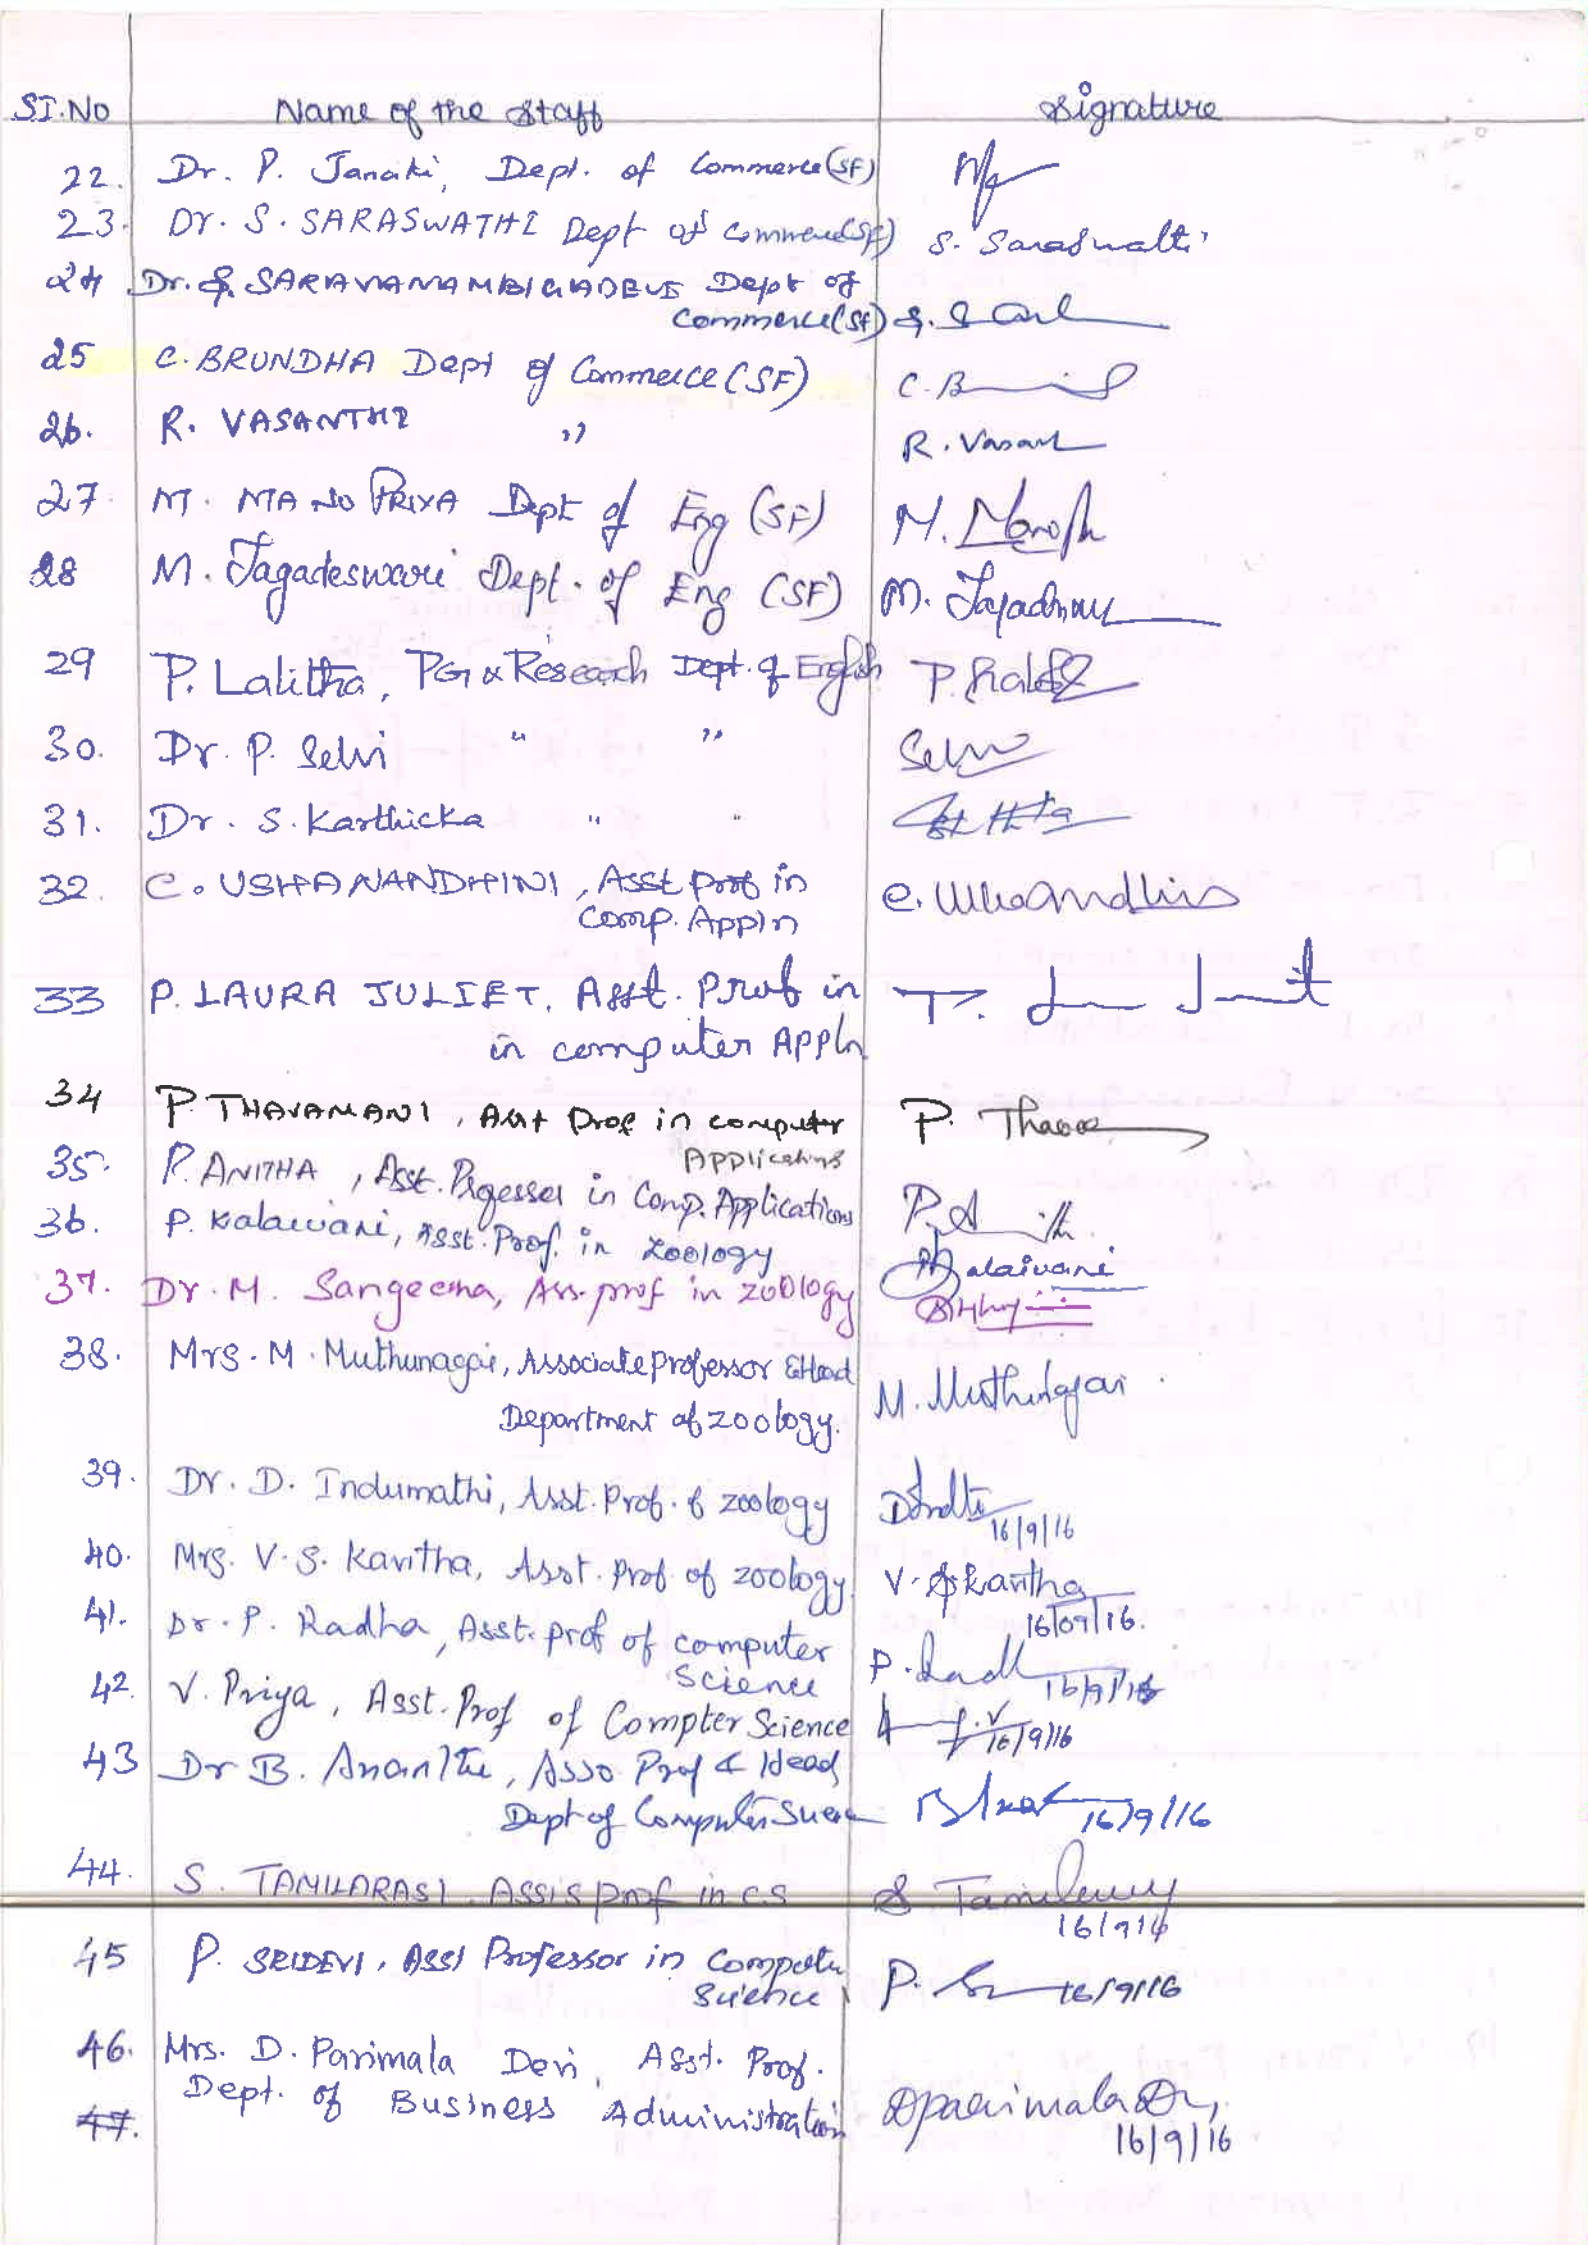 SI.No Name of the Staff Signature
22. Dr. P. Janaki, Dept. of Commerce (SF)
23. Dr. S. SARASWATHI Dept of Commerce(SF) S. Saraswathi
24 Dr. G. SARAVANAMBIGADEVI Dept of
Commerce(SF)
25 C. BRUNDHA Dept of Commerce (SF) C. B
26. R. VASANTHI " R. Vasan
27. M. MANO PRIYA Dept of Eng (SF) M.
28 M. Jagadeswari Dept. of Eng (SF) M.
29 P. Lalitha, PG & Research Dept. of English P.
30. Dr. P. Selvi " " Selvi
31. Dr. S. Karthicka " "
32. C. USHANANDHINI, Asst prof in C.
Comp. Appln
33 P. LAURA JULIET, Asst. Prof in
in computer Appln
34 P THAVAMANI, Asst Prof in computer P.
Applications
35. P. ANITHA, Asst. Professor in Comp. Applications P.
36. P. Kalaivani, Asst. Prof. in Zoology
37. Dr. M. Sangeetha, Ass. prof in zoology
38. Mrs. M. Muthunagai, Associate Professor & Head M. Muthunagai
Department of zoology.
39. Dr. D. Indumathi, Asst. Prof. of zoology
16/9/16
40. Mrs. V. S. Kavitha, Asst. Prof of zoology. V. S Kavitha
16/09/16.
41. Dr. P. Radha, Asst. prof of computer P. Radh
Science 16/9/16
42. V. Priya, Asst. Prof of Compter Science 16/9/16
43 Dr B. Ananthi, Asso Prof & Head
Dept of Computer Science 16/9/16
44. S. TAMILARASI, ASSIS prof in C.S S
16/9/16
45 P. SRIDEVI, Assi Professor in Computer P. 16/9/16
Science
46. Mrs. D. Parimala Devi, Asst. Prof.
Dept. of Business Administration
47. 16/9/16